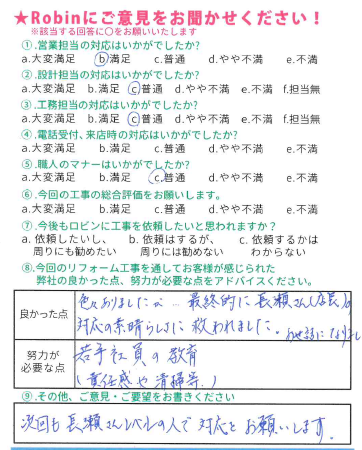 ★Robinにご意見をお聞かせください！
※該当する回答に○をお願いいたします
①.営業担当の対応はいかがでしたか?
a.大変満足 b.満足 c.普通 d.やや不満 e.不満
②.設計担当の対応はいかがでしたか?
a.大変満足 b.満足 c.普通 d.やや不満 e.不満 f.担当無
③.工務担当の対応はいかがでしたか?
a.大変満足 b.満足 c.普通 d.やや不満 e.不満 f.担当無
④.電話受付、来店時の対応はいかがでしたか?
a.大変満足 b.満足 c.普通 d.やや不満 e.不満
⑤.職人のマナーはいかがでしたか?
a.大変満足 b.満足 c.普通 d.やや不満 e.不満
⑥.今回の工事の総合評価をお願いします。
a.大変満足 b.満足 c.普通 d.やや不満 e.不満
⑦.今後もロビンに工事を依頼したいと思われますか?
a. 依頼したいし、 b. 依頼はするが、 c. 依頼するかは
周りにも勧めたい 周りには勧めない わからない
⑧.今回のリフォーム工事を通してお客様が感じられた
弊社の良かった点、努力が必要な点をアドバイスください。
良かった点
色々ありましたが… 最終的に長瀬さん
対応の素晴らしさに救われました。
努力が
必要な点
若手社員の教育
(責任感や清掃等.)
⑨.その他、ご意見・ご要望をお書きください
次回も長瀬さんレベルの人で対応をお願いします。